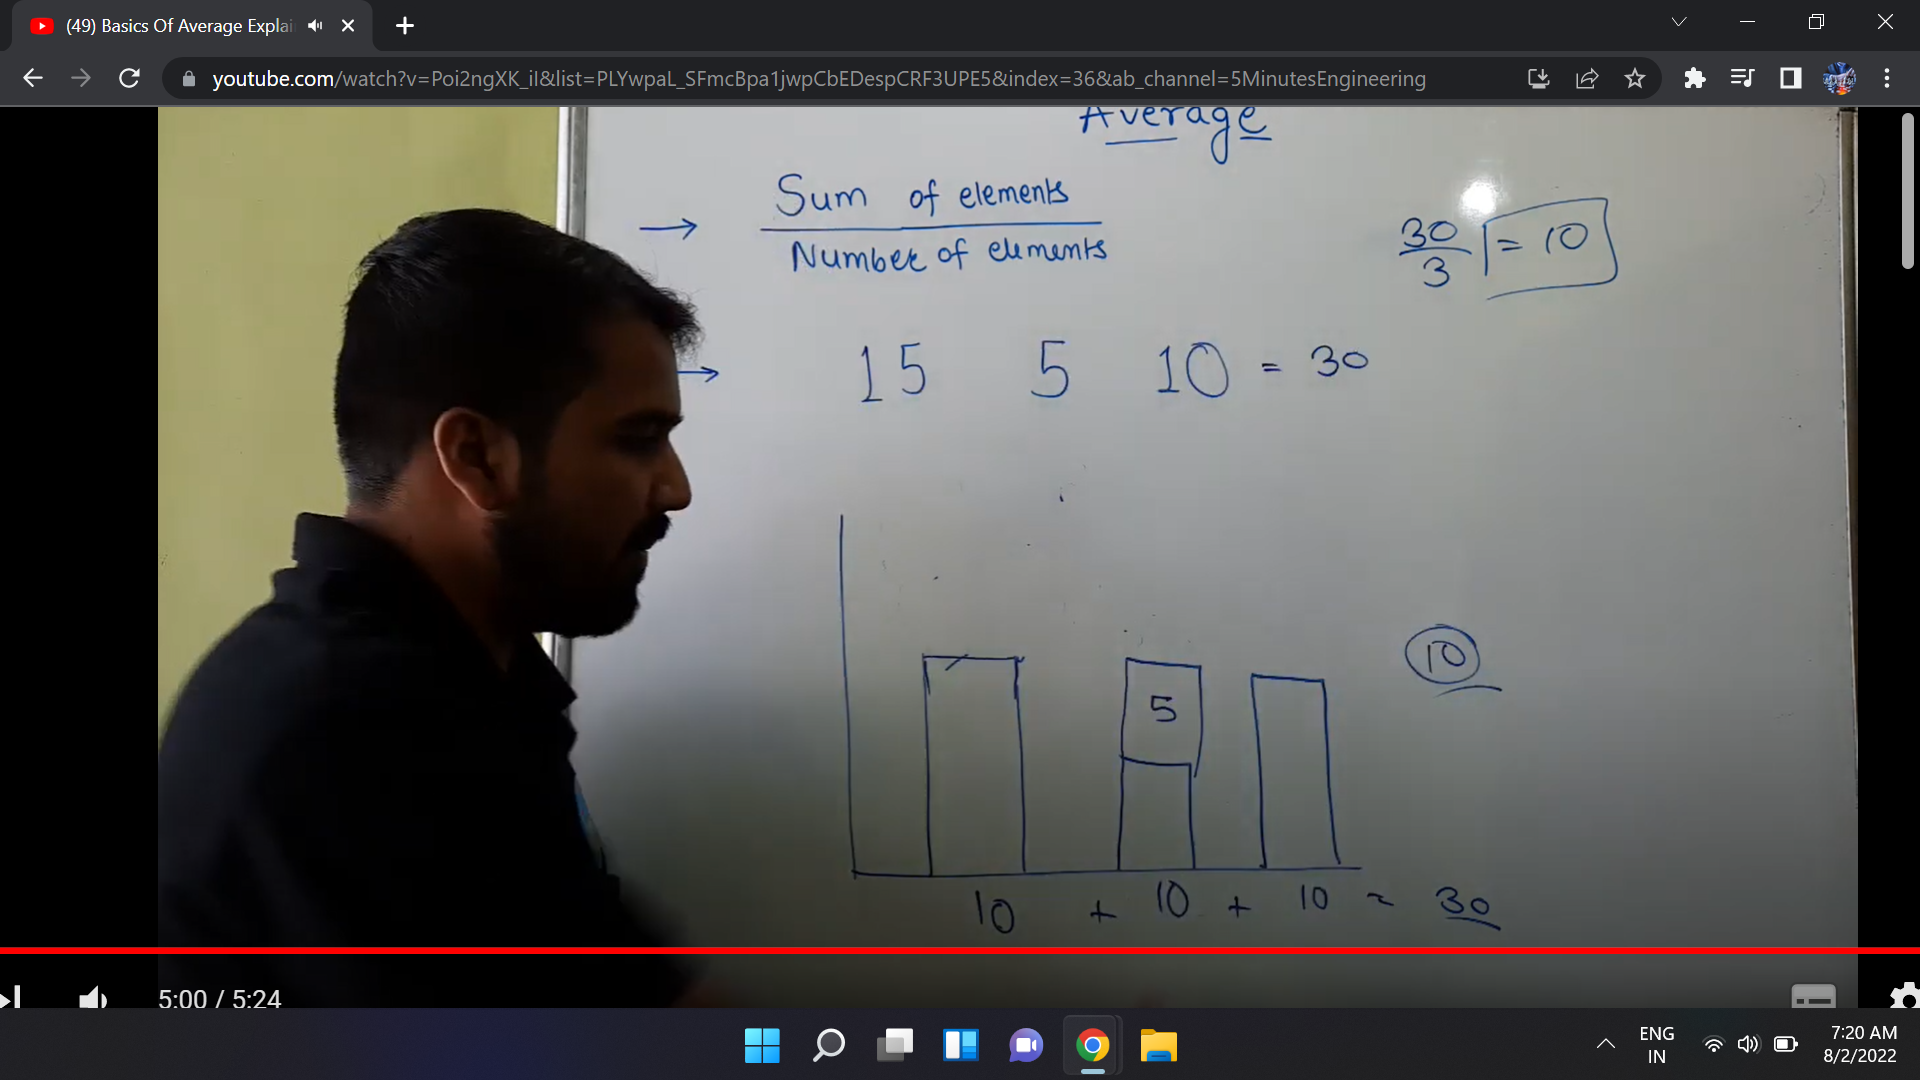 (49) Basics Of Average Explai
youtube.com/watch?v=Poi2ngXK_iI&list=PLYwpaL_SFmcBpa1jwpCbEDespCRF3UPE5&index=36&ab_channel=5MinutesEngineering
Average
→ Sum of elements
Number of elements
30
3
= 10
→ 15 5 10 = 30
5
10
10 + 10 + 10 = 30
5:00 / 5:24
ENG
IN
7:20 AM
8/2/2022